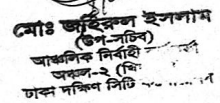 মোঃ জহিরুল ইসলাম
(উপ-সচিব)
আঞ্চলিক নির্বাহী
অঞ্চল-২
ঢাকা দক্ষিণ সিটি